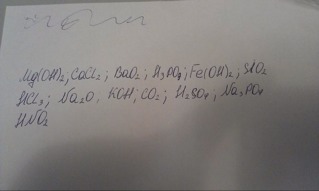 Mg(OH)₂, CaCl₂; BaO₂; H₃PO₄; Fe(OH)₂, SiO₂
HCl₃; Na₂O, KOH; CO₂; H₂SO₄, Na₃PO₄
HNO₂